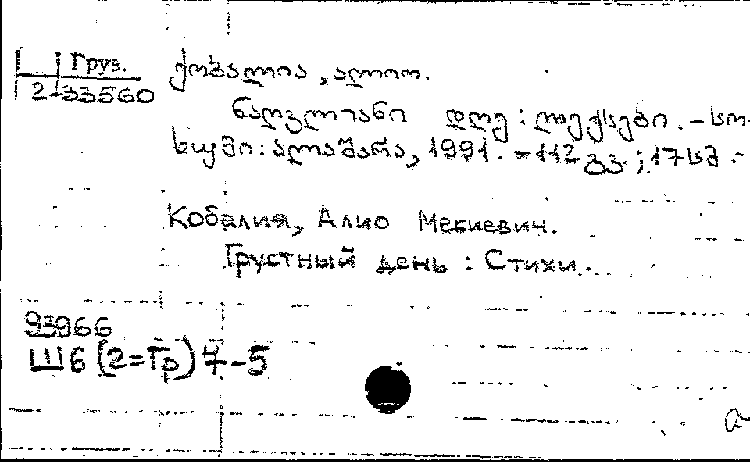 Груз.
2-33560
ქობალია, ალიო.
ნაღვლიანი დღე : ლექსები. – სო-
ხუმი: ალაშარა, 1991. – 112 გვ.; 17სმ. –
Кобалия, Алио Мекиевич.
Грустный день : Стихи.
93966
Ш6(2=Гр)7-5